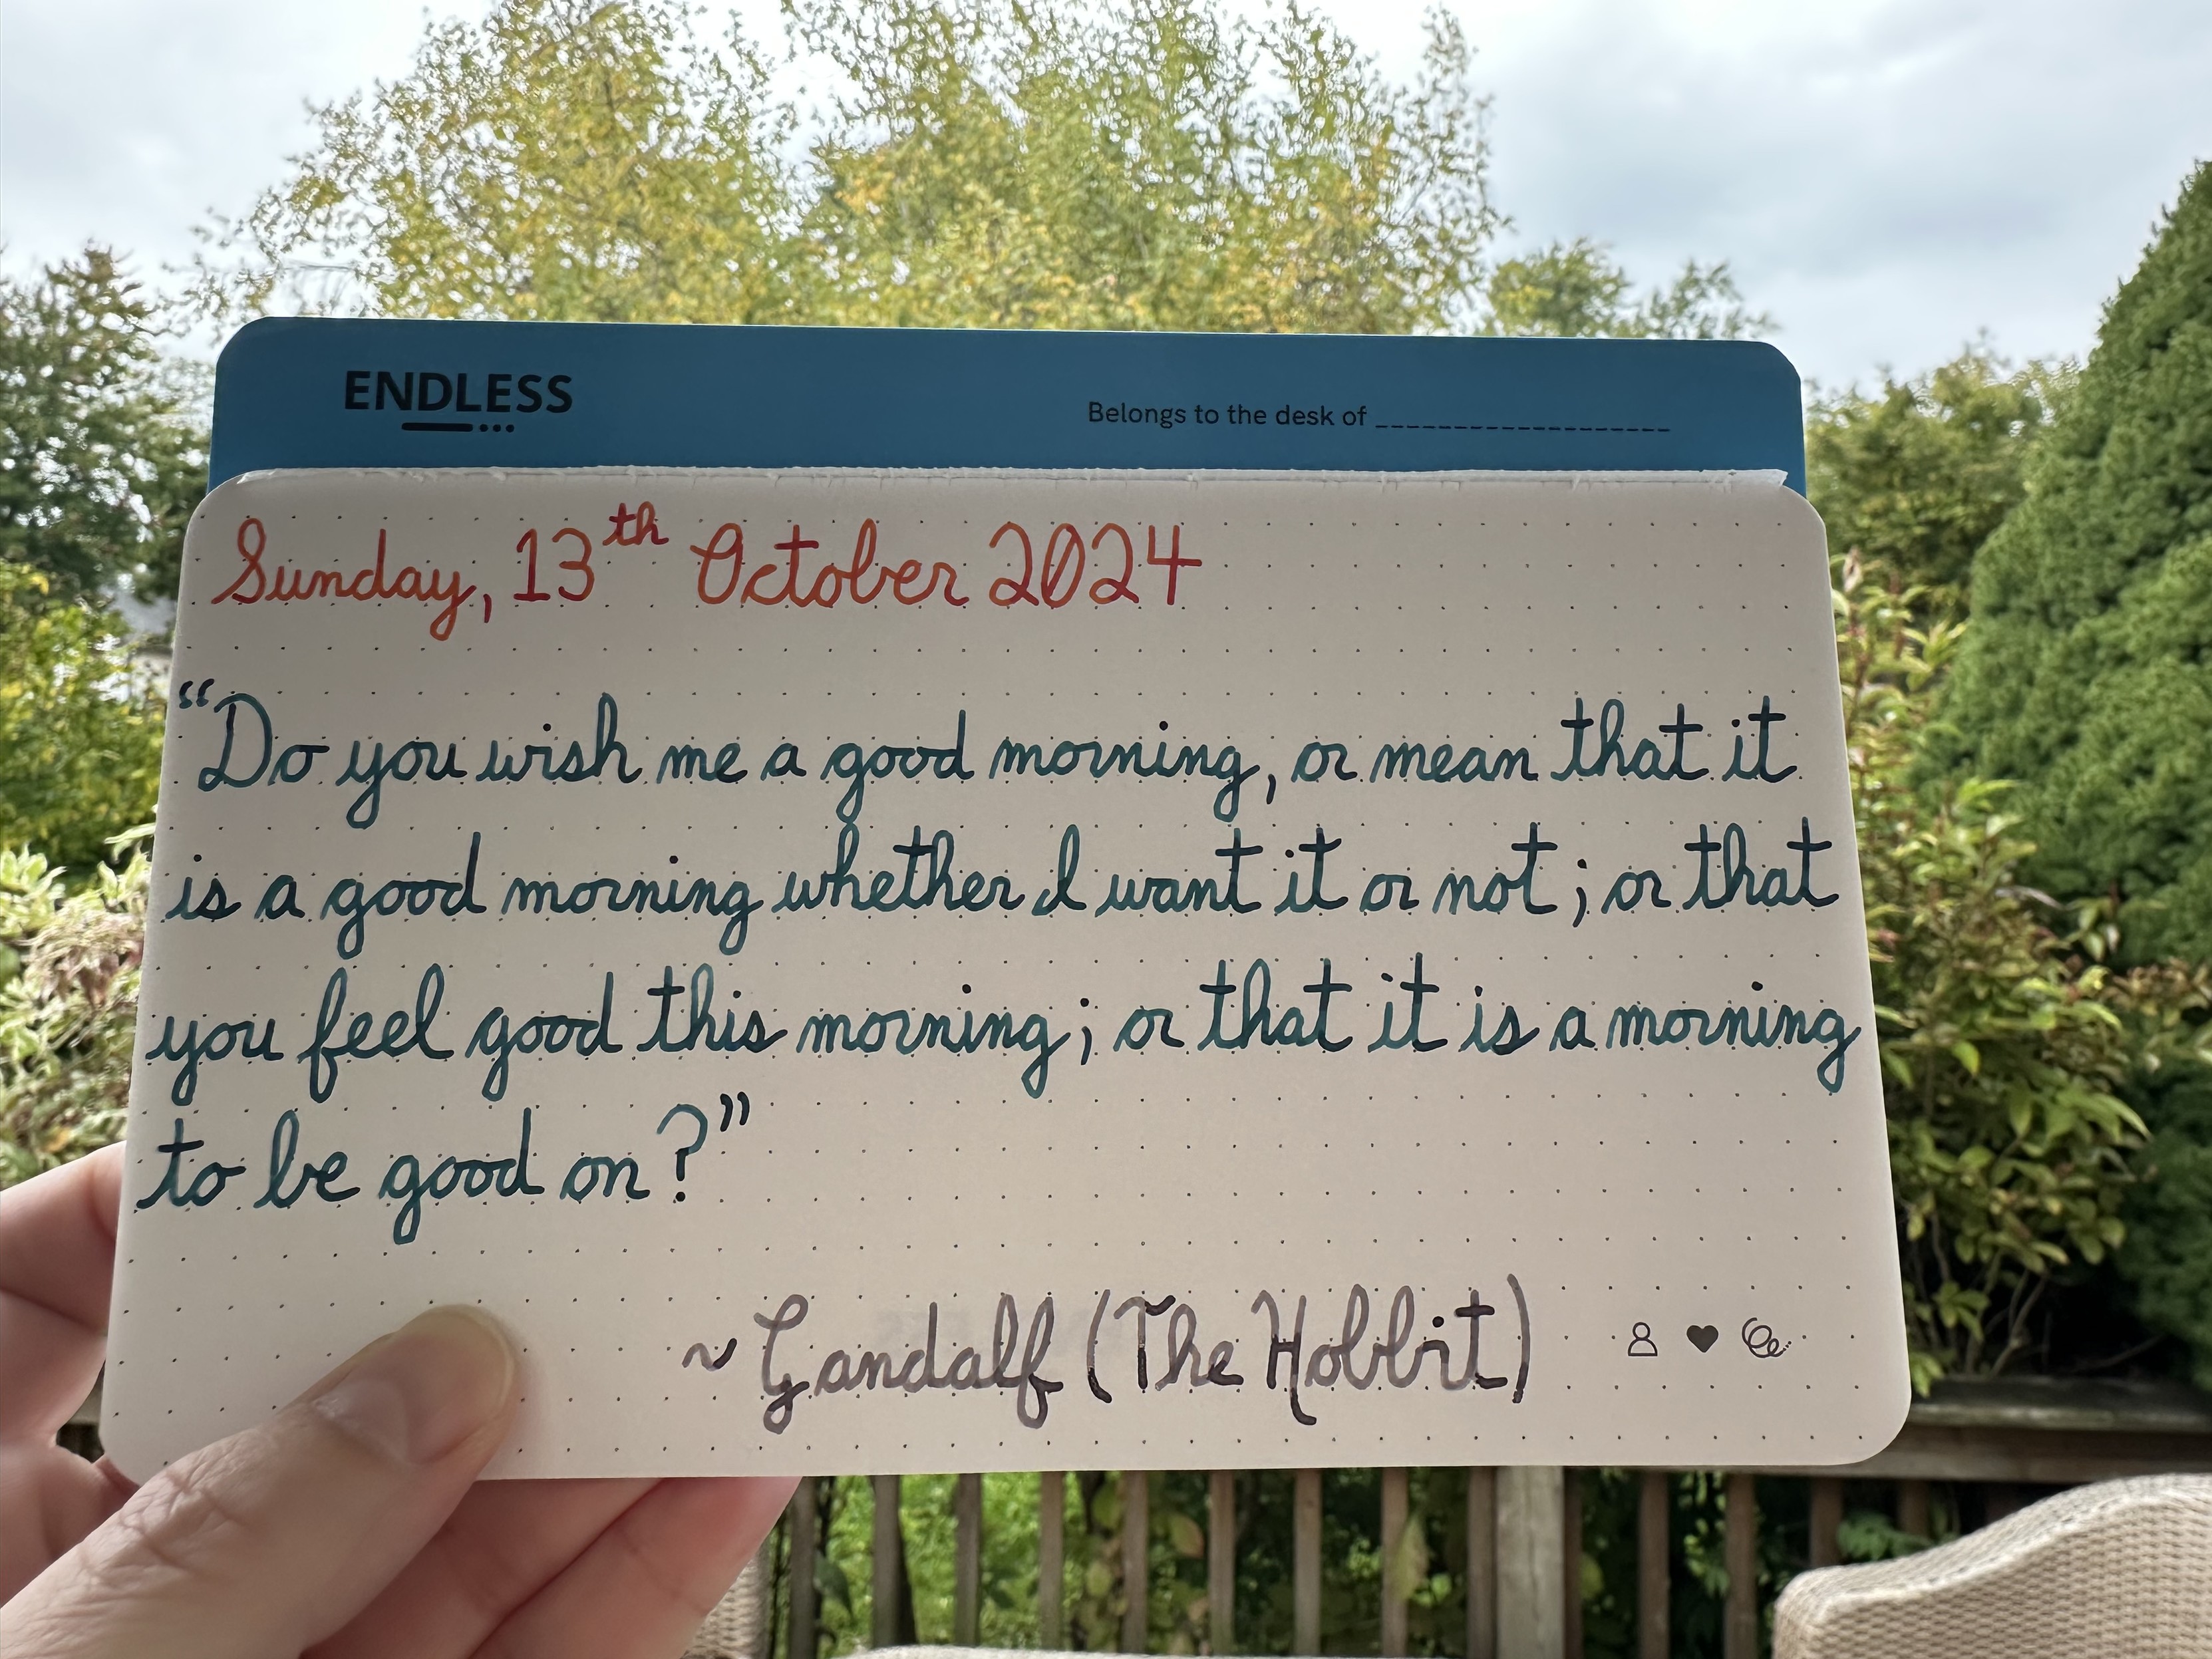 ENDLESS
Belongs to the desk of ____________________
Sunday, 13th October 2024
“Do you wish me a good morning, or mean that it
is a good morning whether I want it or not; or that
you feel good this morning; or that it is a morning
to be good on?”
~ Gandalf (The Hobbit)